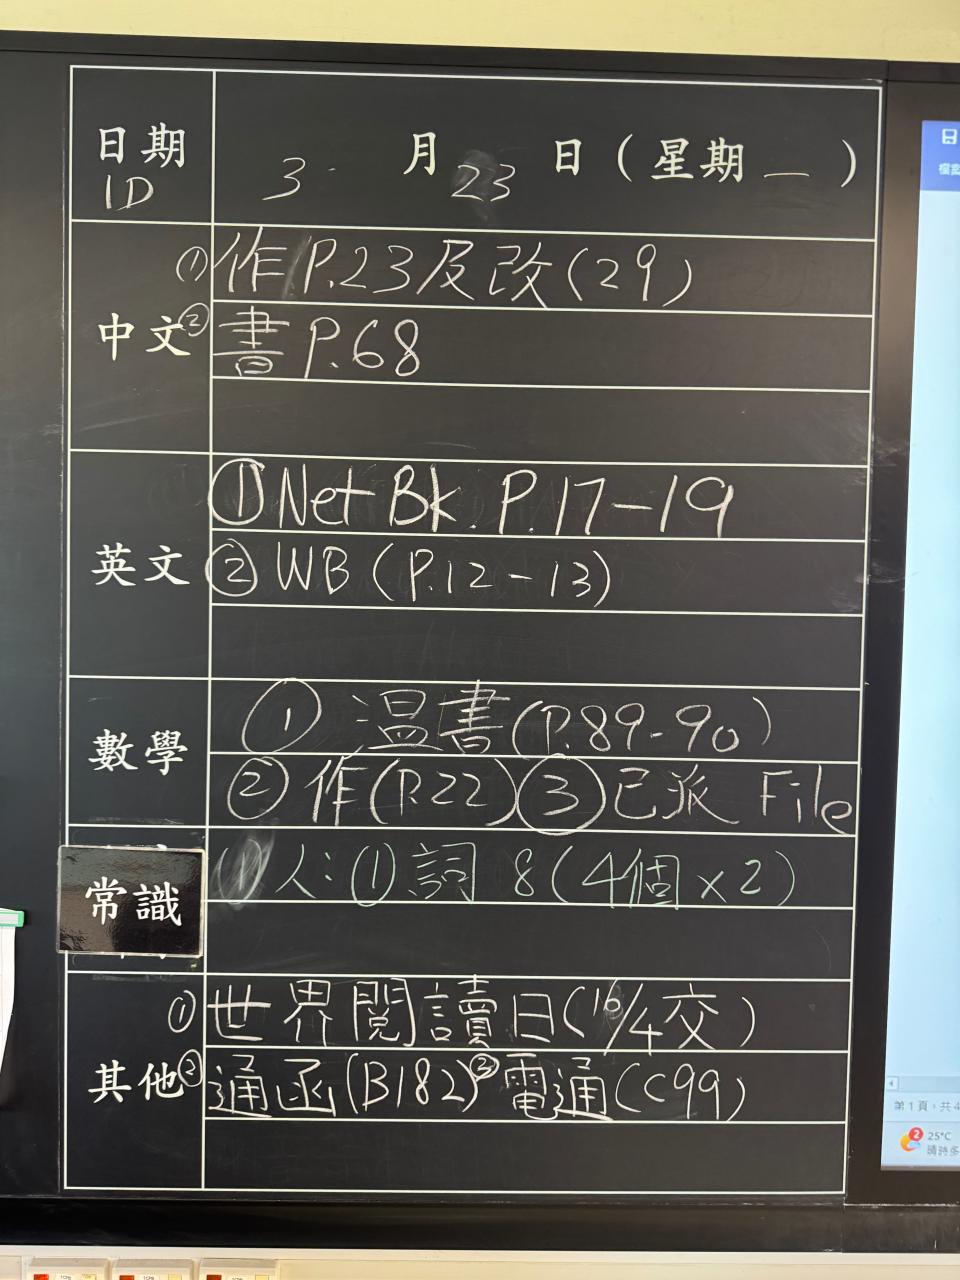 日期 3 月 23 日（星期一）
1D
中文
① 作 P.23 及改(29)
② 書 P.68
英文
① Net Bk. P.17-19
② WB (P.12-13)
數學
① 溫書(P.89-90)
② 作(P.22) ③ 已派 File
常識
① 人: ① 詞 8(4個x2)
其他
① 世界閱讀日(16/4交)
② 通函(B182) ③ 電通(C99)
檔案
第 1 頁，共 4
2
25°C
晴時多